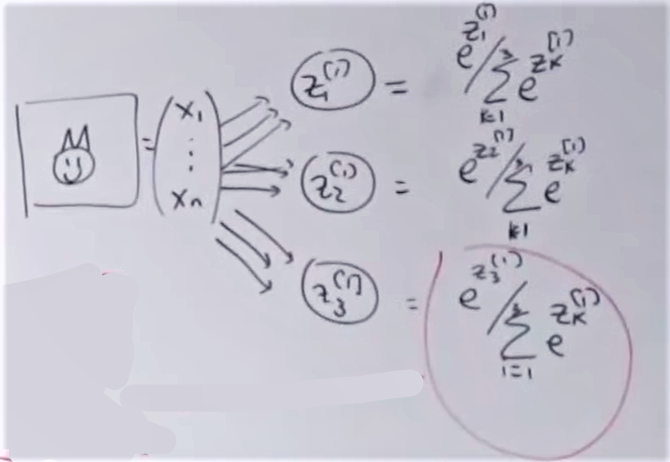 z₁^[1] = e^{z₁^[1]} / ∑_{k=1}^{3} e^{z_k^[1]}
= (x₁ ⋮ xₙ)
z₂^[1] = e^{z₂^[1]} / ∑_{k=1}^{3} e^{z_k^[1]}
z₃^[1] = e^{z₃^[1]} / ∑_{i=1}^{3} e^{z_k^[1]}